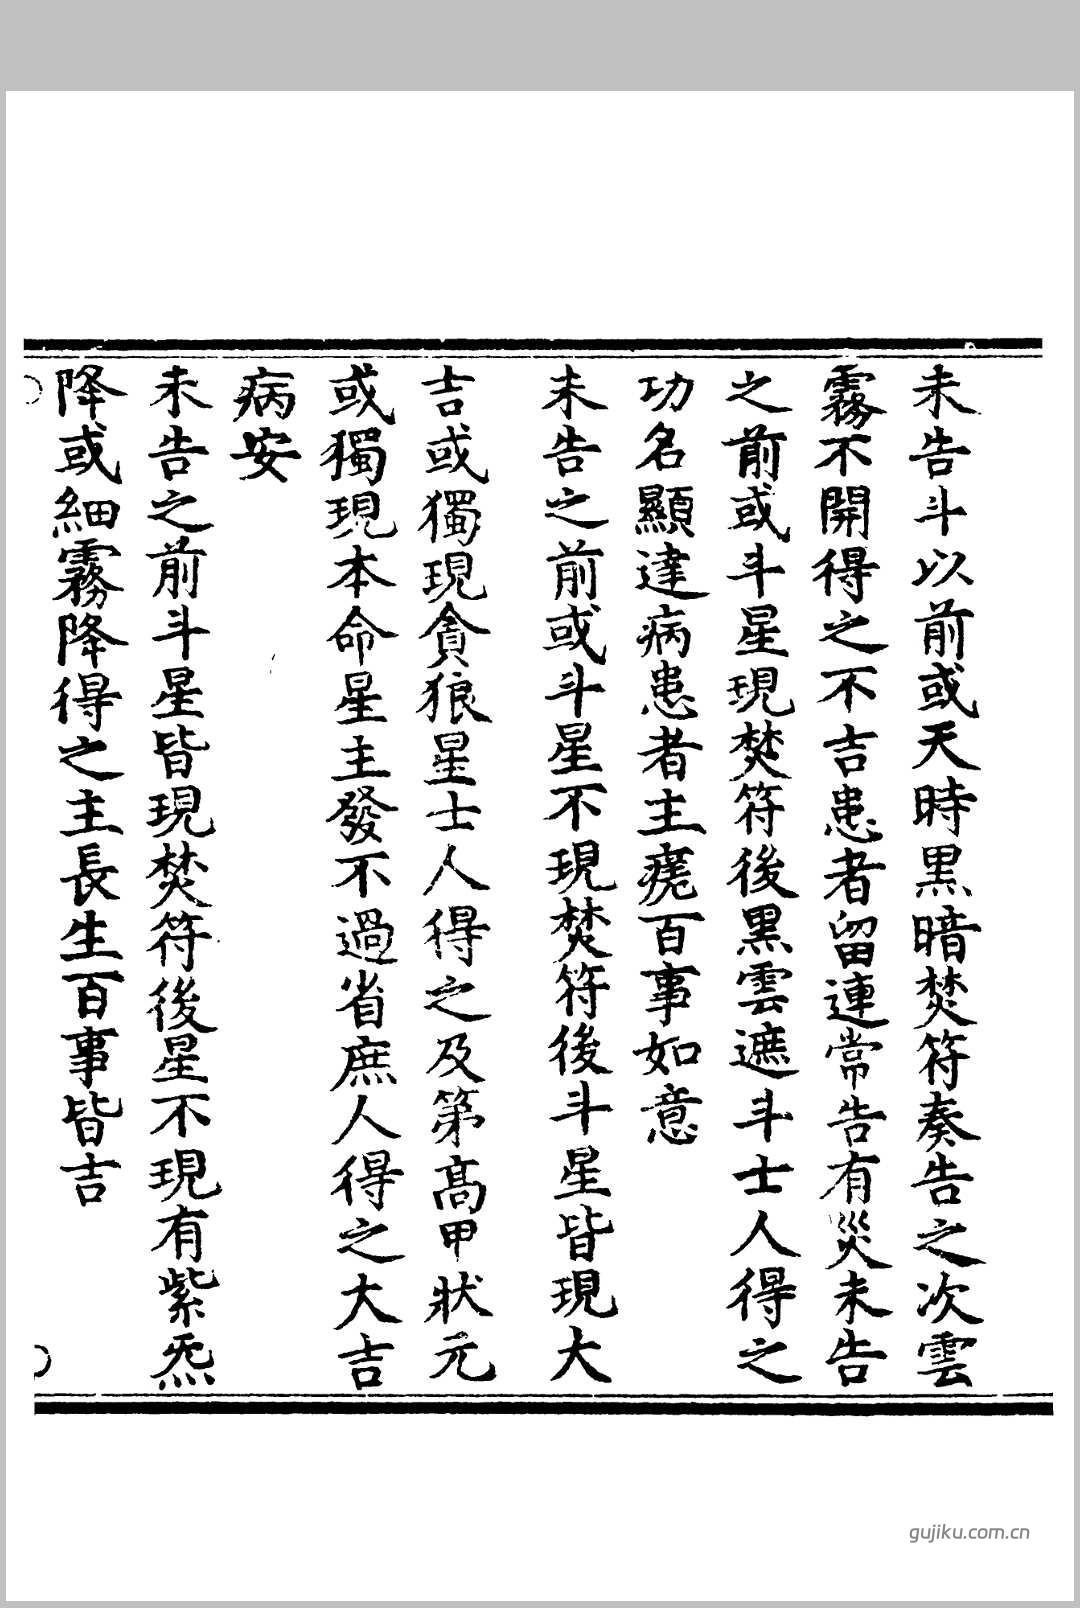 未告斗以前或天時黒暗焚符奏告之次雲
霧不開得之不吉患者留連常告有災未告
之前或斗星現焚符後黒雲遮斗士人得之
功名顯達病患者主痊百事如意
未告之前或斗星不現焚符後斗星皆現大
吉或獨現貪狼星士人得之及第高甲狀元
或獨現本命星主發不過省庶人得之大吉
病安
未告之前斗星皆現焚符後星不現有紫炁
降或細霧降得之主長生百事皆吉
gujiku.com.cn